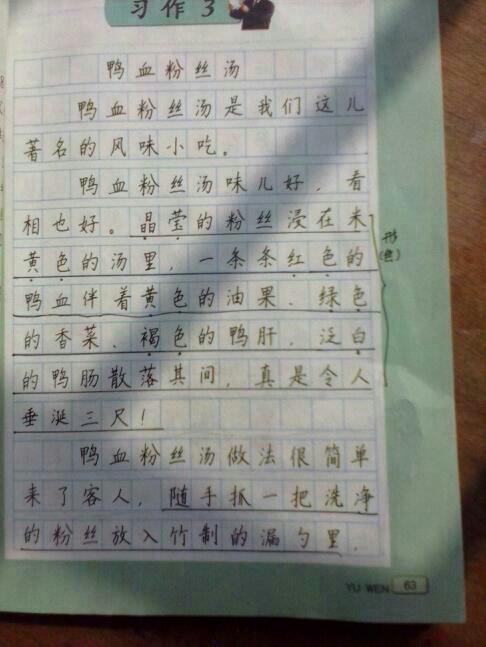 习作3
鸭血粉丝汤
鸭血粉丝汤是我们这儿
著名的风味小吃。
鸭血粉丝汤味儿好，看
相也好。晶莹的粉丝浸在米
黄色的汤里，一条条红色的
鸭血伴着黄色的油果、绿色
的香菜、褐色的鸭肝，泛白
的鸭肠散落其间，真是令人
垂涎三尺！
鸭血粉丝汤做法很简单
来了客人，随手抓一把洗净
的粉丝放入竹制的漏勺里，
形
(色)
YU WEN 63